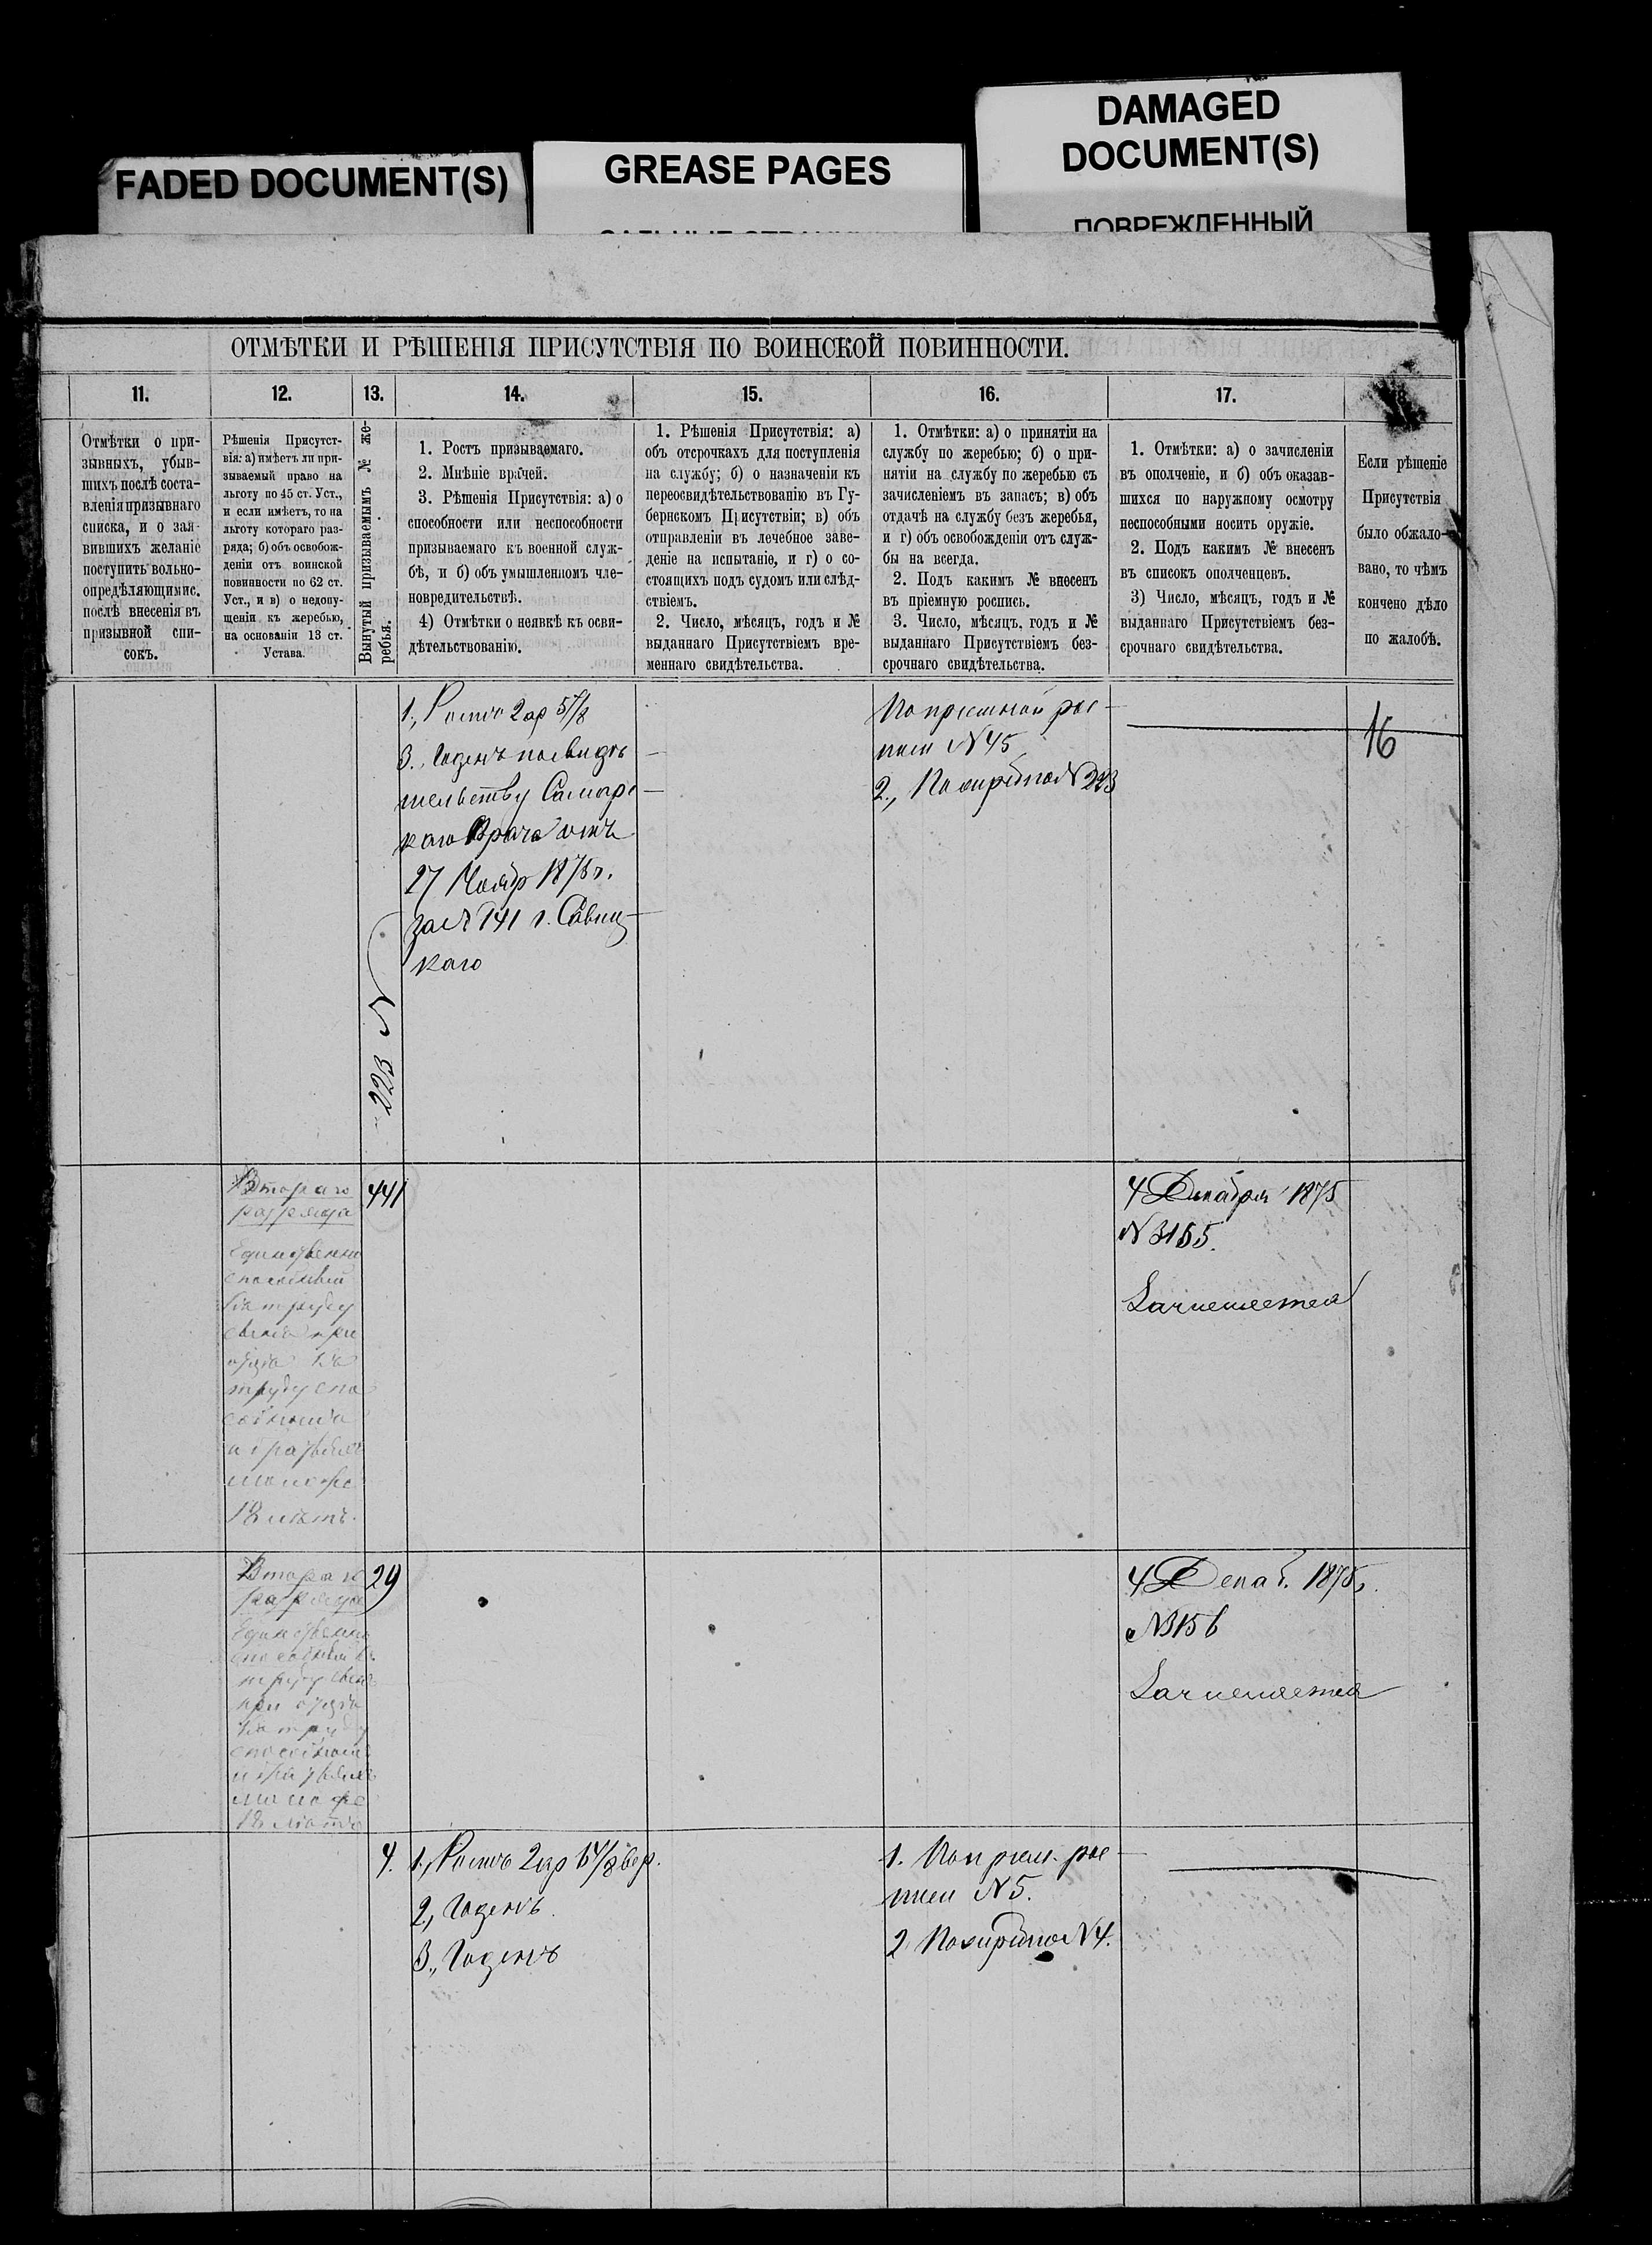 FADED DOCUMENT(S)
GREASE PAGES
DAMAGED
DOCUMENT(S)
ПОВРЕЖДЕННЫЙ
ОТМѢТКИ И РѢШЕНІЯ ПРИСУТСТВІЯ ПО ВОИНСКОЙ ПОВИННОСТИ.
11.
12.
13.
14.
15.
16.
17.
Отмѣтки о при-
зывныхъ, убыв-
шихъ послѣ соста-
вленія призывнаго
списка, и о зая-
вившихъ желаніе
поступить вольно-
опредѣляющимис.
послѣ внесенія въ
призывной спи-
сокъ.
Рѣшенія Присутст-
вія: а) имѣетъ ли при-
зываемый право на
льготу по 45 ст. Уст.,
и если имѣетъ, то на
льготу котораго раз-
ряда; б) объ освобож-
деніи отъ воинской
повинности по 62 ст.
Уст., и в) о недопу-
щеніи къ жеребью,
на основаніи 13 ст.
Устава.
Вынутый призываемымъ № же-
ребья.
1. Ростъ призываемаго.
2. Мнѣніе врачей.
3. Рѣшенія Присутствія: а) о
способности или неспособности
призываемаго къ военной служ-
бѣ, и б) объ умышленномъ чле-
новредительствѣ.
4) Отмѣтки о неявкѣ къ осви-
дѣтельствованію.
1. Рѣшенія Присутствія: а)
объ отсрочкахъ для поступленія
на службу; б) о назначеніи къ
переосвидѣтельствованію въ Гу-
бернскомъ Присутствіи; в) объ
отправленіи въ лечебное заве-
деніе на испытаніе, и г) о со-
стоящихъ подъ судомъ или слѣд-
ствіемъ.
2. Число, мѣсяцъ, годъ и №
выданнаго Присутствіемъ вре-
меннаго свидѣтельства.
1. Отмѣтки: а) о принятіи на
службу по жеребью; б) о при-
нятіи на службу по жеребью съ
зачисленіемъ въ запасъ; в) объ
отдачѣ на службу безъ жеребья,
и г) объ освобожденіи отъ служ-
бы на всегда.
2. Подъ какимъ № внесенъ
въ пріемную роспись.
3. Число, мѣсяцъ, годъ и №
выданнаго Присутствіемъ без-
срочнаго свидѣтельства.
1. Отмѣтки: а) о зачисленіи
въ ополченіе, и б) объ оказав-
шихся по наружному осмотру
неспособными носить оружіе.
2. Подъ какимъ № внесенъ
въ списокъ ополченцевъ.
3) Число, мѣсяцъ, годъ и №
выданнаго Присутствіемъ без-
срочнаго свидѣтельства.
Если рѣшеніе
Присутствія
было обжало-
вано, то чѣмъ
кончено дѣло
по жалобѣ.
223 N
1., Ростъ 2 ар 5/8
3., Годенъ по свидѣ
тельству Самарс
каго Врача отъ
27 Ноябр 1875 г.
за N 141 г. Савиц-
каго
По пріемной рос-
писи N 45
2., По жеребью N 223
16
Втораго
разряда
Единственно
способный
къ труду
сынъ при
отцѣ къ
труду спо
собномъ
и братьяхъ
моложе
18 лѣтъ.
441
4 Декабря 1875
N 3155.
Зачисляется
Втораго
разряда
Единственно
способный къ
труду сынъ
при отцѣ
къ труду
способномъ
и братьяхъ
моложе
18 лѣтъ
29
4 Декаб. 1875 г.
N 3156
Зачисляется
4.
1., Ростъ 2 ар 6 4/8 вер.
2., Годенъ
3., Годенъ
1. По пріем. рос-
писи N 5.
2 По жеребью N 4.